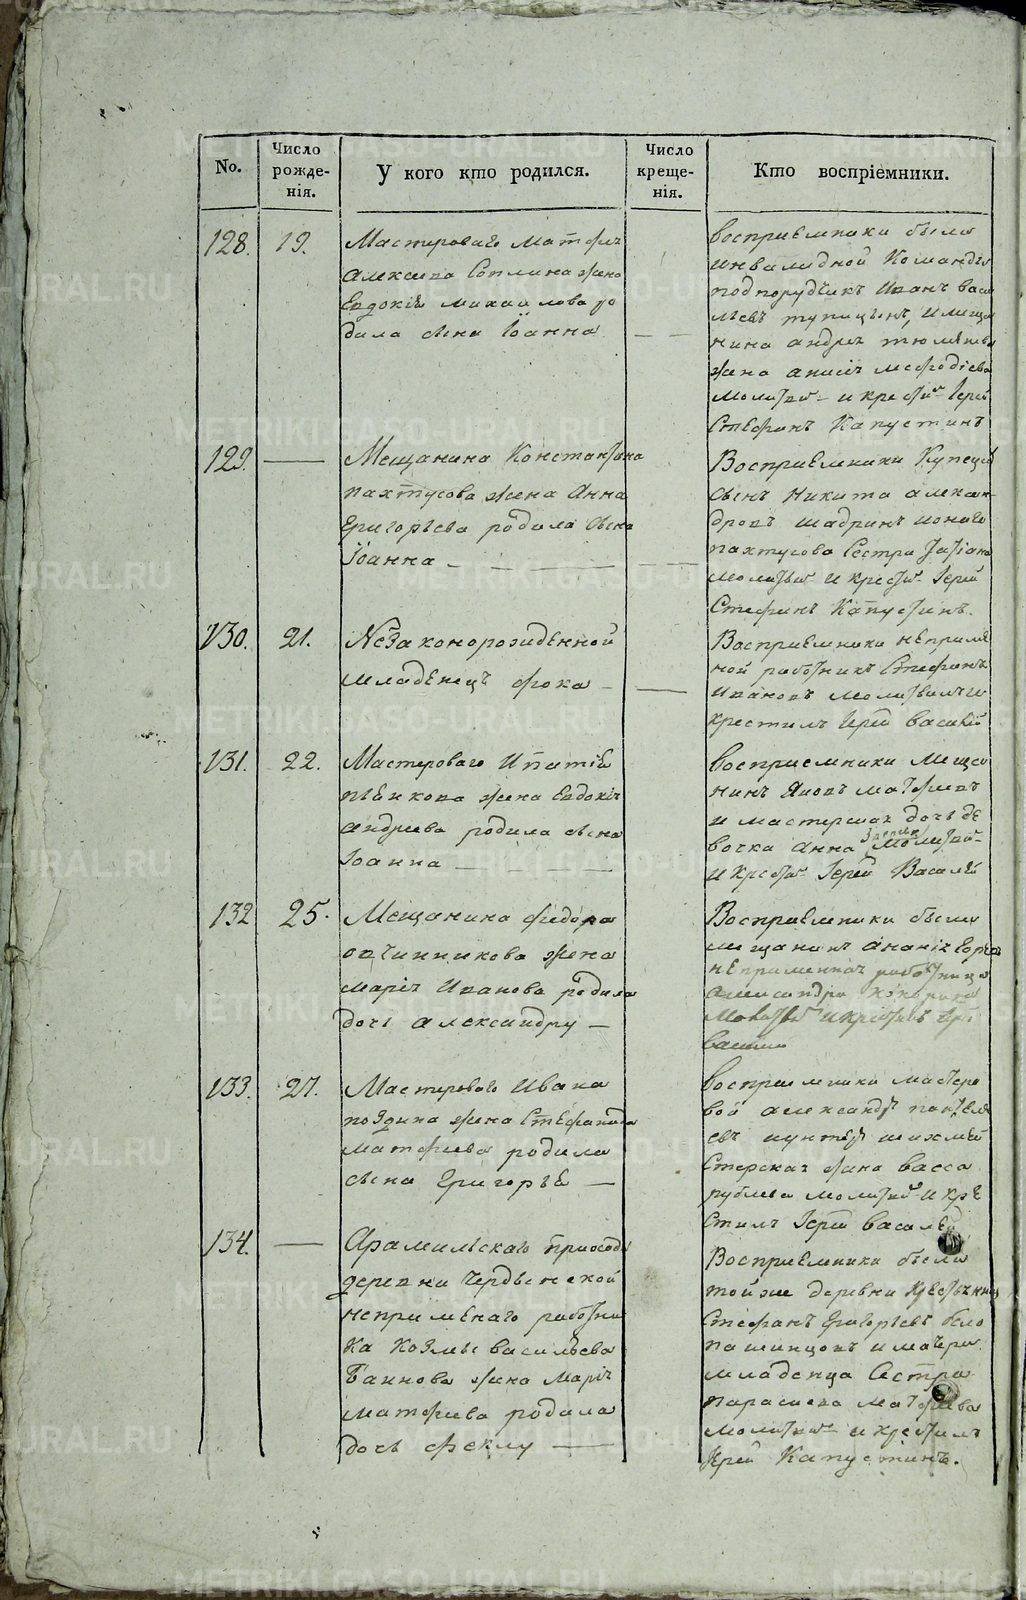 No.
Число рожде-нія.
У кого кто родился.
Число креще-нія.
Кто воспріемники.
128. 19. Мастероваго Матфея
Алексева жена
Евдокія михаилова ро
дила сына Іоанна
восприемники были
инвалидной Команды
подпорудчикъ Иванъ васи
льевъ и меща
нина андрея
жена мефодіева
молитв. и крестил Іерей
Стефанъ Капустинъ
129. — Мещанина Константина
пахтусова жена Анна
Григорьева родила сына
Іоанна
Восприемники Купецкій
сынъ Никита алексан
дровъ шадринъ и онаго
пахтусова Сестра Татіана
молитв. и крестил. Іерей
Стефанъ Капустинъ.
130. 21. Незаконорожденной
младенецъ фока
Восприемники непримѣ
ной работникъ Стефанъ
Ивановъ молитвилъ и
крестилъ Іерей василій
131. 22. Мастероваго Ипатія
жена Евдокія
андреева родила сына
Іоанна
восприемники мещa
нинъ Яковъ матфеевъ
и мастерская дочь де
вочка Анна молитв.
и крестил. Іерей Василей
132 25. Мещанина федора
овчинникова жена
марія Иванова родила
дочь александру
Восприемники были
мещанинъ ананія
непримѣнная работница
александра
Молитв. и крестилъ Іерей
василий
133. 27. Мастероваго Ивана
поздина жена Стефанида
матфиева родила
сына Григорья
восприемники мастеро
вой александръ пантеле
евъ
жена васса
молитв. и кре
стилъ Іерей василей
134. — Арамильскаго приходу
деревни
непримѣнаго работни
ка козмы васильева
Баннова жена Марія
матфиева родила
дочь феклу
Восприемники были
той же деревни
Стефанъ Григорьевъ бело
пашинцовъ и матери
младенца Сестра
парасковa матфиева
молитв. и крестилъ
Іерей Капустинъ.
METRIKI.GASO-URAL.RU